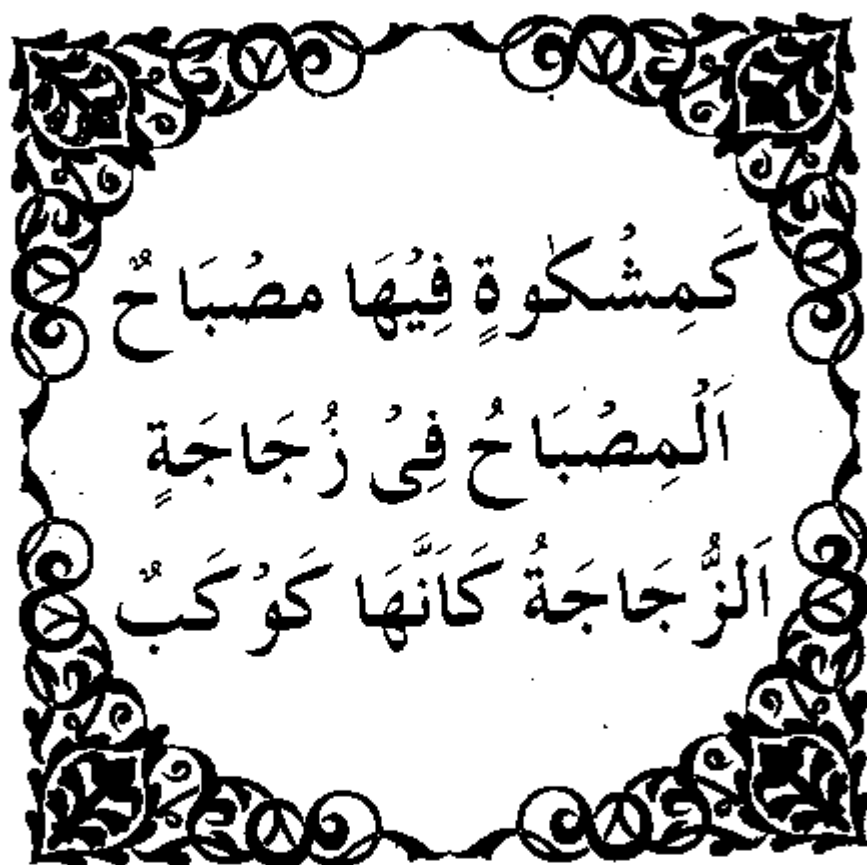 كَمِشْكٰوةٍ فِيْهَا مصْبَاحٌ
اَلْمِصْبَاحُ فِىْ زُجَاجَةٍ
اَلزُّجَاجَةُ كَاَنَّهَا كَوْكَبٌ